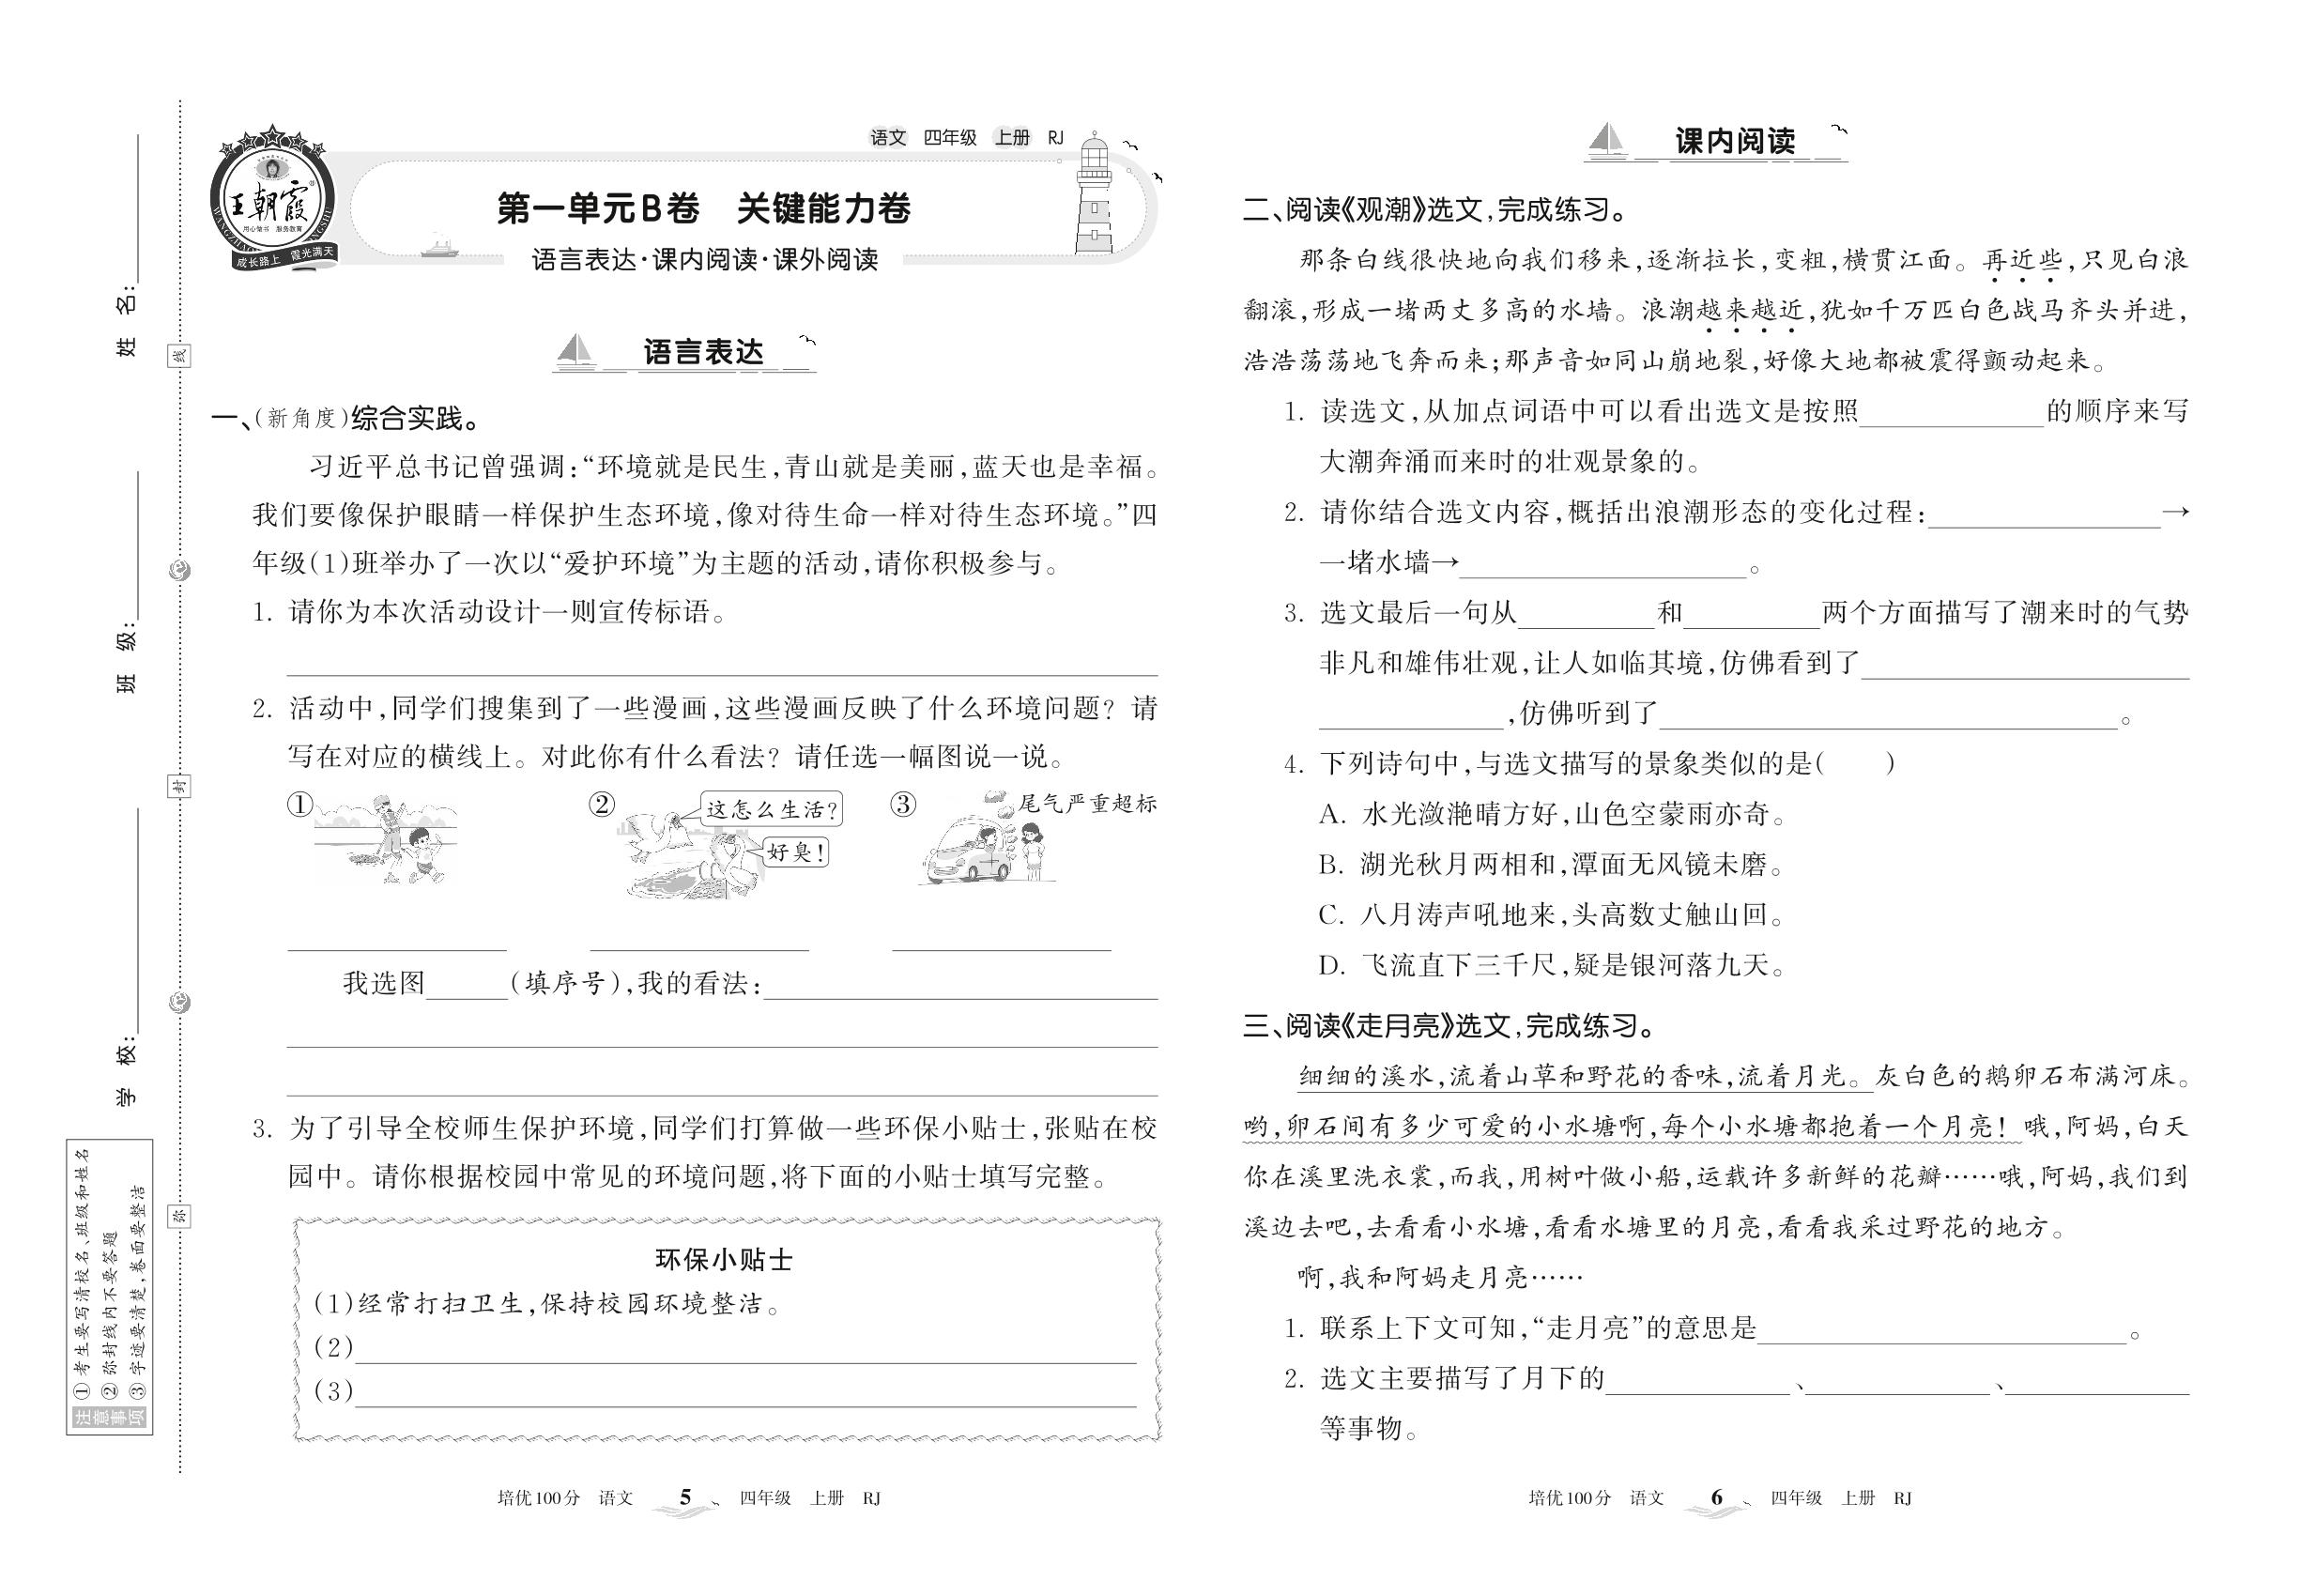 姓 名:
班 级:
学 校:
线
封
弥
注意事项
①考生要写清校名、班级和姓名
②弥封线内不要答题
③字迹要清楚,卷面要整洁
王朝霞®
用心做书 服务教育
成长路上 霞光满天
语文 四年级 上册 RJ
第一单元B卷 关键能力卷
语言表达·课内阅读·课外阅读
语言表达
一、(新角度)综合实践。
习近平总书记曾强调:“环境就是民生,青山就是美丽,蓝天也是幸福。
我们要像保护眼睛一样保护生态环境,像对待生命一样对待生态环境。”四
年级(1)班举办了一次以“爱护环境”为主题的活动,请你积极参与。
1. 请你为本次活动设计一则宣传标语。
2. 活动中,同学们搜集到了一些漫画,这些漫画反映了什么环境问题? 请
写在对应的横线上。对此你有什么看法? 请任选一幅图说一说。
① ② 这怎么生活? 好臭! ③ 尾气严重超标
我选图______(填序号),我的看法:______
3. 为了引导全校师生保护环境,同学们打算做一些环保小贴士,张贴在校
园中。请你根据校园中常见的环境问题,将下面的小贴士填写完整。
环保小贴士
(1)经常打扫卫生,保持校园环境整洁。
(2)______
(3)______
培优100分 语文 5 四年级 上册 RJ
课内阅读
二、阅读《观潮》选文,完成练习。
那条白线很快地向我们移来,逐渐拉长,变粗,横贯江面。再近些,只见白浪
翻滚,形成一堵两丈多高的水墙。浪潮越来越近,犹如千万匹白色战马齐头并进,
浩浩荡荡地飞奔而来;那声音如同山崩地裂,好像大地都被震得颤动起来。
1. 读选文,从加点词语中可以看出选文是按照______的顺序来写
大潮奔涌而来时的壮观景象的。
2. 请你结合选文内容,概括出浪潮形态的变化过程:______→
一堵水墙→______。
3. 选文最后一句从______和______两个方面描写了潮来时的气势
非凡和雄伟壮观,让人如临其境,仿佛看到了______
______,仿佛听到了______。
4. 下列诗句中,与选文描写的景象类似的是(  )
A. 水光潋滟晴方好,山色空蒙雨亦奇。
B. 湖光秋月两相和,潭面无风镜未磨。
C. 八月涛声吼地来,头高数丈触山回。
D. 飞流直下三千尺,疑是银河落九天。
三、阅读《走月亮》选文,完成练习。
细细的溪水,流着山草和野花的香味,流着月光。灰白色的鹅卵石布满河床。
哟,卵石间有多少可爱的小水塘啊,每个小水塘都抱着一个月亮! 哦,阿妈,白天
你在溪里洗衣裳,而我,用树叶做小船,运载许多新鲜的花瓣……哦,阿妈,我们到
溪边去吧,去看看小水塘,看看水塘里的月亮,看看我采过野花的地方。
啊,我和阿妈走月亮……
1. 联系上下文可知,“走月亮”的意思是______。
2. 选文主要描写了月下的______、______、______
等事物。
培优100分 语文 6 四年级 上册 RJ